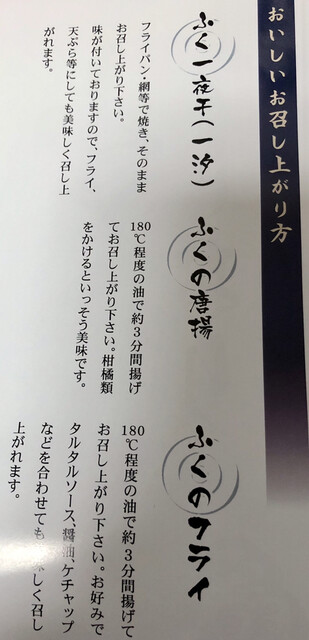 おいしいお召し上がり方
ふく一夜干(一汐)
フライパン・網等で焼き、そのまま
お召し上がり下さい。
味が付いておりますので、フライ、
天ぷら等にしても美味しく召し上
がれます。
ふくの唐揚
180℃程度の油で約3分間揚げ
てお召し上がり下さい。柑橘類
をかけるといっそう美味です。
ふくのフライ
180℃程度の油で約3分間揚げて
お召し上がり下さい。お好みで
タルタルソース、醤油、ケチャップ
などを合わせても しく召し
上がれます。